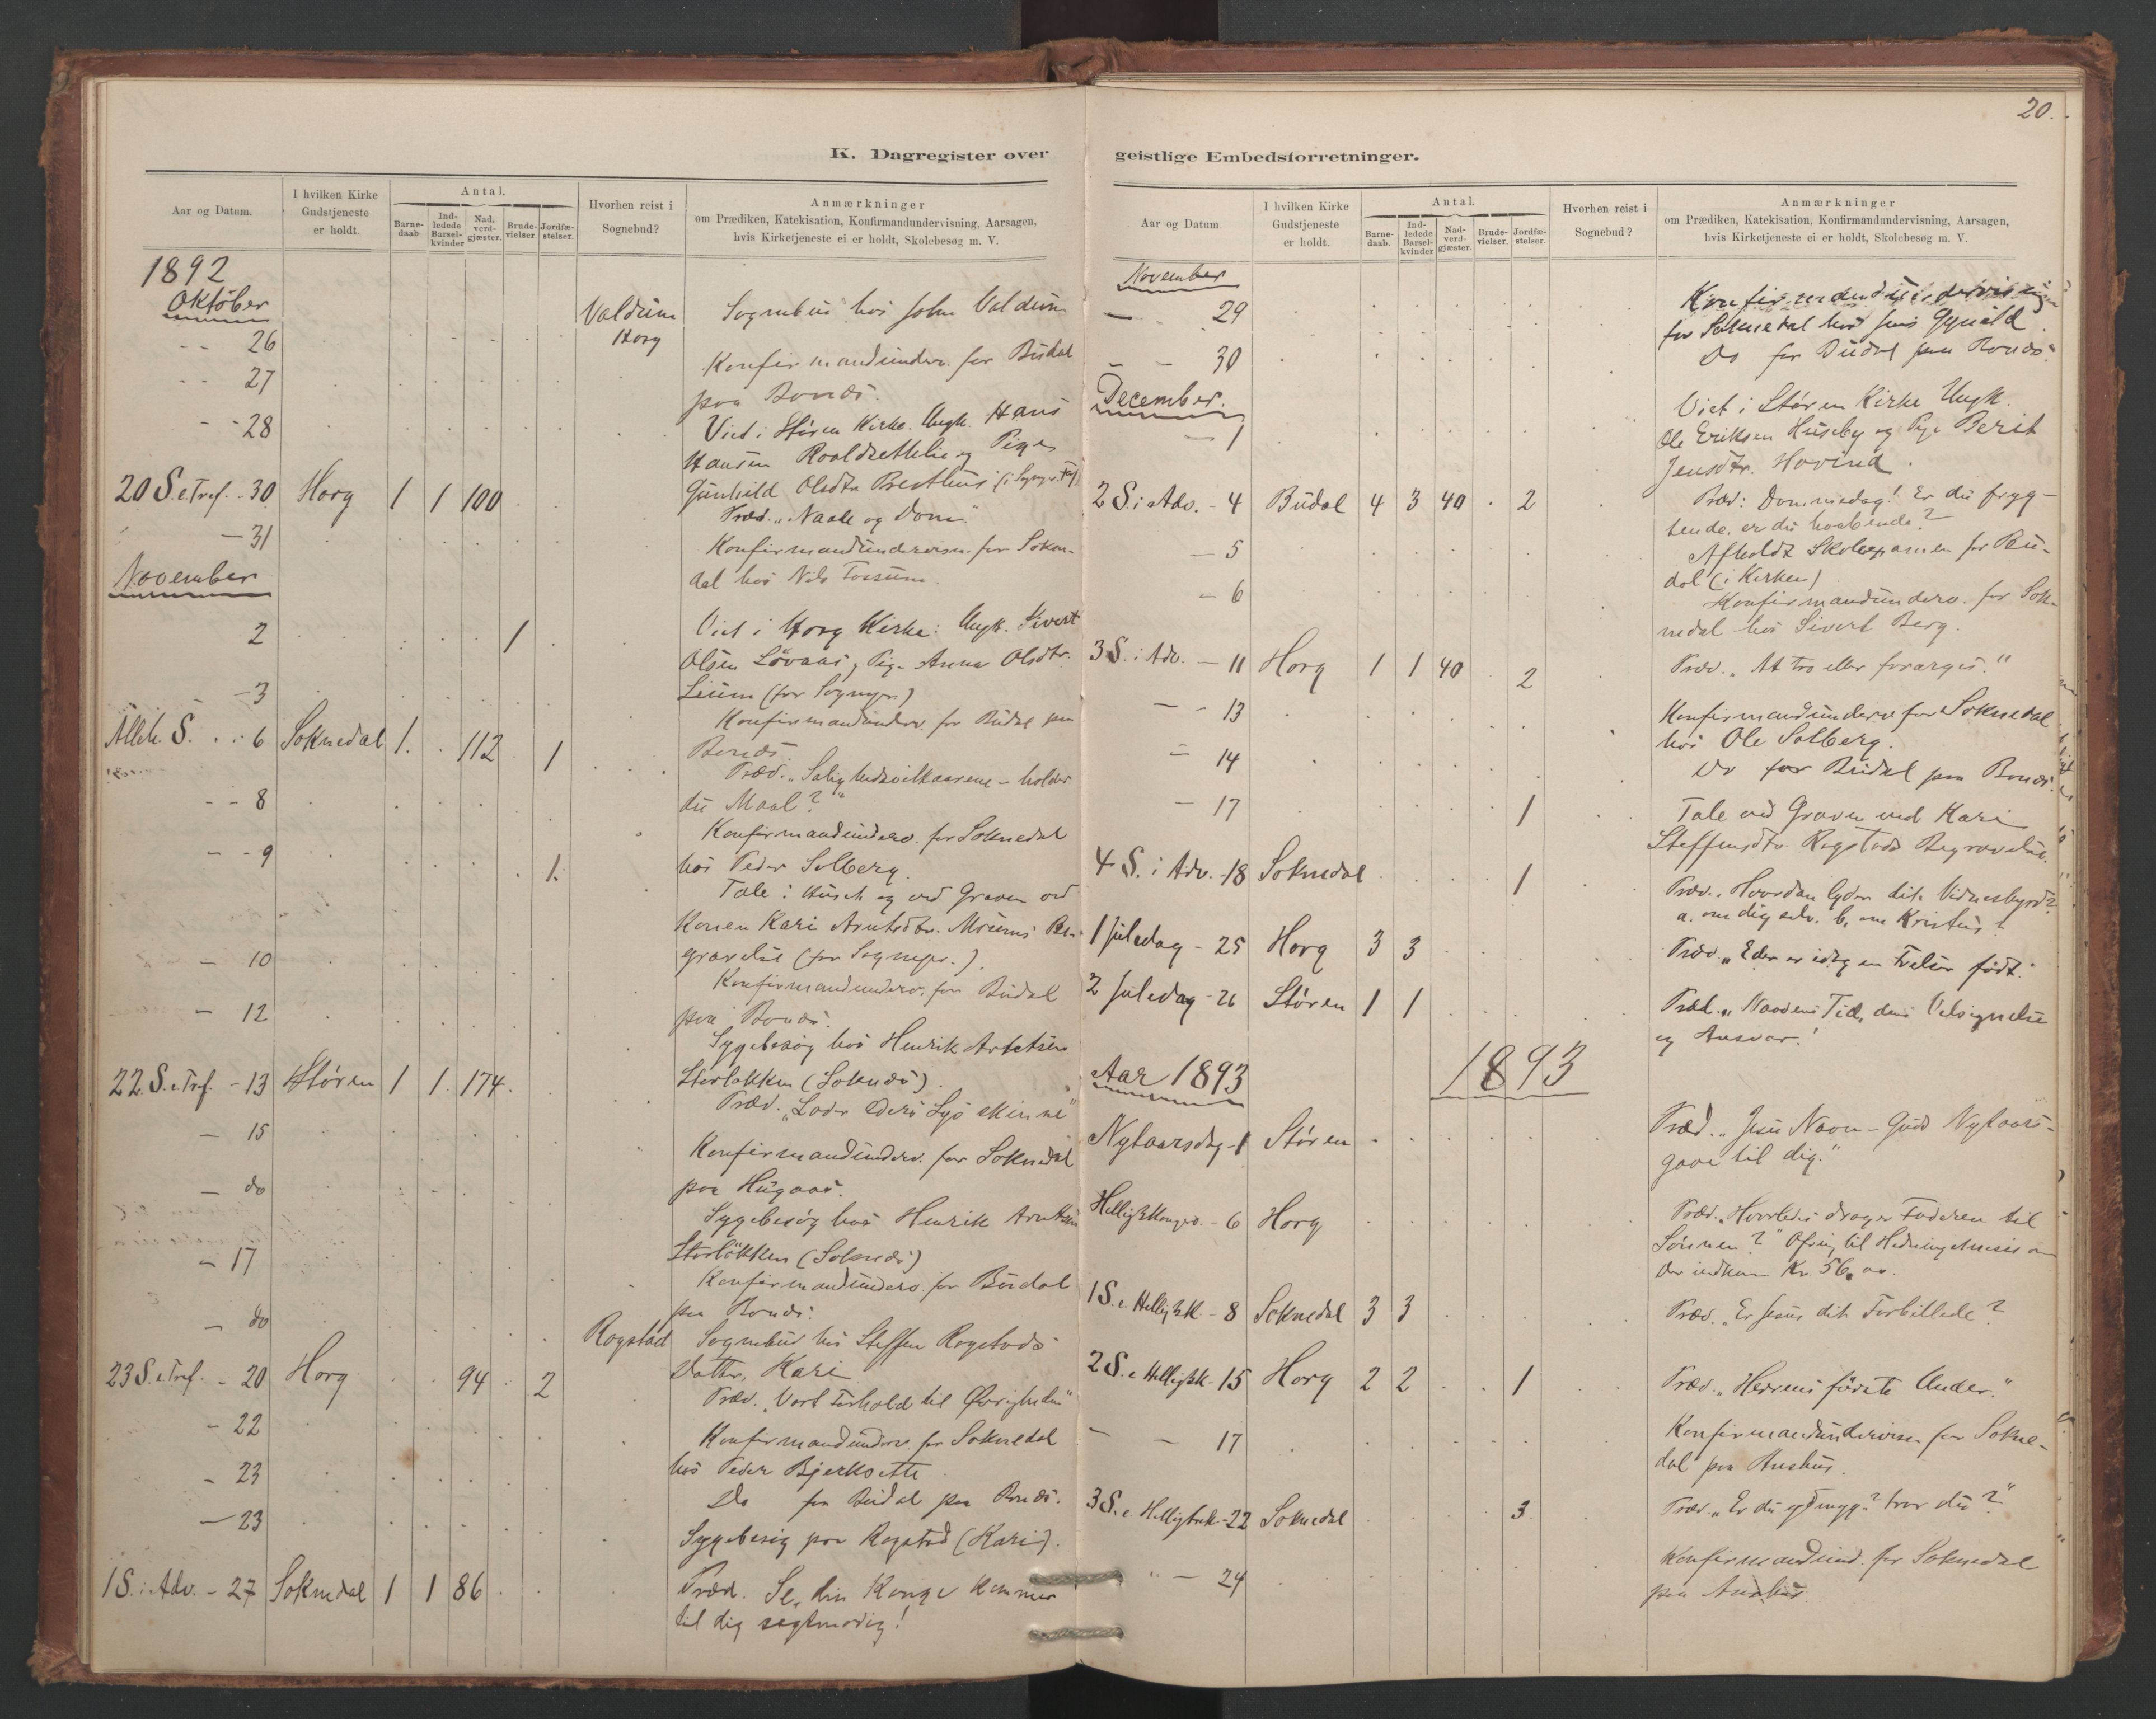 20.
K. Dagregister over geistlige Embedsforretninger.
Aar og Datum.
I hvilken Kirke Gudstjeneste er holdt.
Antal.
Barne-daab
Ind-ledede Barsel-kvinder
Nad. verd-gjæster.
Brude-vielser
Jordfæ-stelser.
Hvorhen reist i Sognebud?
Anmærkninger
om Prædiken, Katekisation, Konfirmandundervisning, Aarsagen,
hvis Kirketjeneste ei er holdt, Skolebesøg m. V.
1892
Oktober
26 Valdum Horg Sognebud hos John Valdum
27 Konfirmandunderv. for Budal
paa Bonæs.
28 Viet i Støren Kirke Ungk. Hans
Hansen Roaldsethlie og Pige
Gunhild Olsdtr
20 S. e. Tref. - 30 Horg 1 1 100
Præd. "Naade og Dom."
- 31 Konfirmandundervisn. for Sokne-
dal hos Nils Fossum.
November
2 1 Viet i Horg Kirke: Ungk. Sivert
Olsen Løvaas, Pige Anna Olsdtr.
Lium (for Sognepr.)
- 3 Konfirmandunderv. for Budal paa
Bonæs
Alleh. S. 6 Soknedal 1. 112 1
Præd. "Salighedsvilkaarene - holder
du Maal?"
- - 8 Konfirmandunderv. for Soknedal
hos Peder Solberg.
- - 9 1. Tale i Huset og ved Graven ved
Konen Kari Arntsdtr. Moums Be-
gravelse (for Sognepr.).
- 10 Konfirmandunderv. for Budal
paa Bonæs.
- 12 Sygebesøg hos Henrik Arntsen
Storløkken (Soknæs).
22. S. e. Tref. - 13 Støren 1 1. 174.
Præd. "Lader Eders Lys skinne"
- 15 Konfirmandunderv. for Soknedal
paa Hugaas.
- do Sygebesøg hos Henrik Arntsen
Storløkken (Soknæs)
- 17 Konfirmandunderv. for Budal
paa Bonæs.
- do Rogstad Sognebud hos Steffen Rogstads
Datter, Kari
23 S. e. Tref. - 20 Horg 94 2
Præd. "Vort Forhold til Øvrigheden"
- 22 Konfirmandunderv. for Soknedal
hos Peder Bjerksette
- 23 Do for Budal paa Bonæs.
- 23 Sygebesøg paa Rogstad (Kari).
1 S. i Adv. - 27 Soknedal 1 1 86
Præd. Se, din Konge kommer
til dig sagtmodig!
Aar og Datum
I hvilken Kirke Gudstjeneste er holdt.
Antal.
Barne-daab.
Ind-ledede Barsel-kvinder
Nad-verd-gjæster.
Brude-vielser.
Jordfæ-stelser.
Hvorhen reist i Sognebud?
Anmærkninger
om Prædiken, Katekisation, Konfirmandundervisning, Aarsagen,
hvis Kirketjeneste ei er holdt, Skolebesøg m. V.
November
- 29 Konfirmandundervisning
for Soknedal hos Jens
- - 30 Do for Budal paa Bonæs.
December.
- 1 Viet i Støren Kirke Ungk.
Ole Eriksen Huseby og Pige Berit
Jensdtr. Hovind.
2 S. i Adv. - 4 Budal 4 3 40 2
Præd: Dommedag! Er du fryg-
tende, er du haabende?
- 5 Afholdt Skoleexamen for Bu-
dal (i Kirken)
- 6 Konfirmandunderv. for Sok-
nedal hos Sivert Berg.
3 S. i Adv. - 11 Horg 1 1 40 2
Præd. "At tro eller forarges."
- - 13 Konfirmandunderv. for Soknedal
hos Ole Solberg.
- 14 Do for Budal paa Bonæs.
- 17 1 Tale ved Graven ved Kari
Steffensdtr. Rogstads Begravelse.
4 S. i Adv. - 18 Soknedal 1
Præd. Hvordan lyder dit Vidnesbyrd?
a. om dig selv. b. om Kristus?
1 Juledag - 25 Horg 3 3
Præd. "Eder er idag en Frelser født."
2 Juledag - 26 Støren 1 1
Præd. "Naadens Tid, dens Velsignelse
og Ansvar!
Aar 1893 1893
Nytaarsdag - 1 Støren
Præd. "Jesu Navn - Guds Nytaars-
gave til dig."
Hellig3Konger - 6 Horg
Præd. "Hvorledes drager Faderen til
Sønnen?" Ofring til Hedningemission
Der indkom Kr. 56,00.
1 S. e. Hellig3k. - 8 Soknedal 3 3
Præd. "Er Jesus dit Forbillede?
2 S. e Hellig3k. - 15 Horg 2 2 1
Præd. "Herrens første Under."
- - 17 Konfirmandundervisn. for Sokne-
dal paa Aushus.
3 S. e Hellig3k. - 22 Soknedal 3
Præd. "Er du ydmyg? tror du?"
" - 24 Konfirmandund. for Soknedal
paa Aushus.